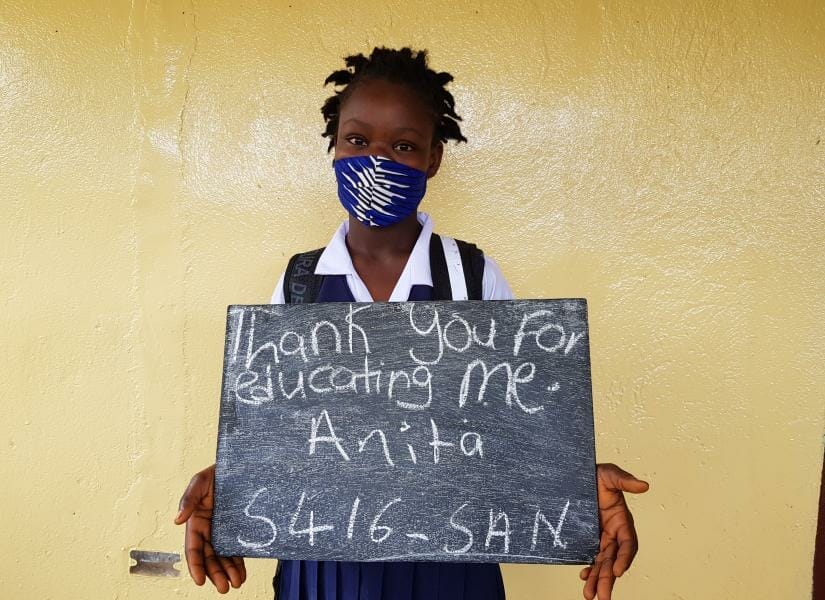 Thank you For
educating me.
Anita
S416-SAN